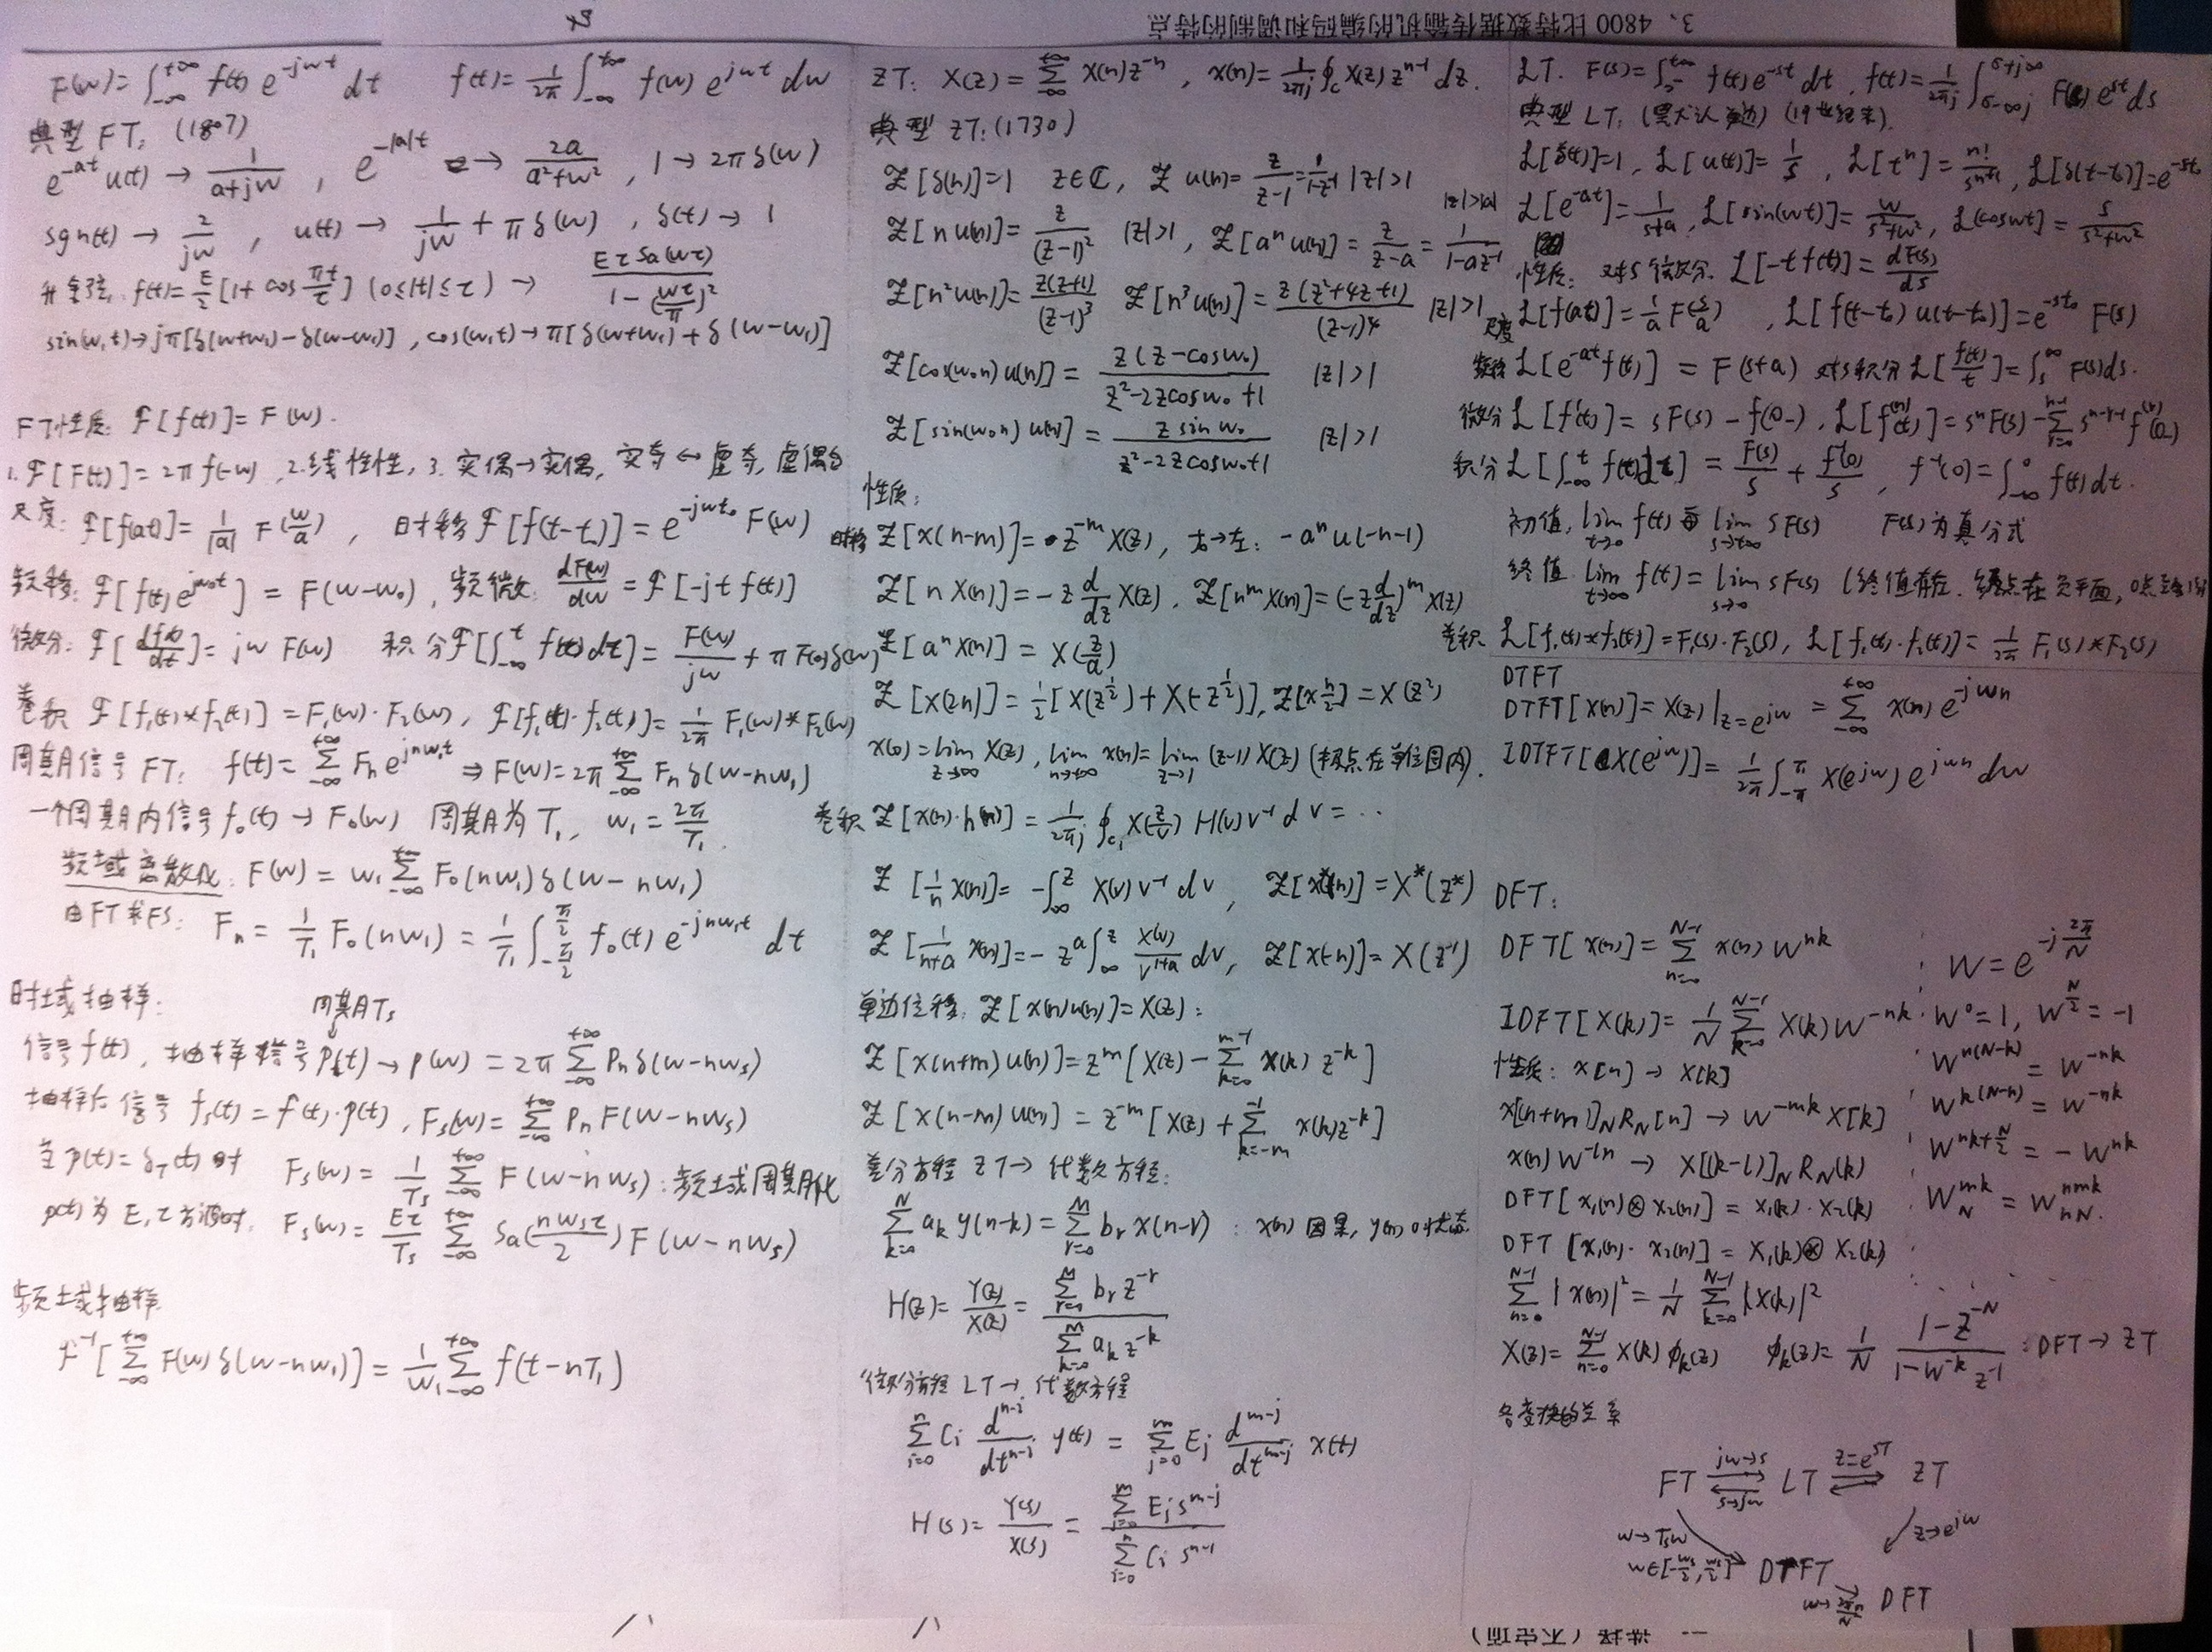 3、4800 比特数据传输机的编码和调制的特点
F(w)=∫_{-∞}^{+∞} f(t) e^{-jwt} dt    f(t)=\frac{1}{2π}∫_{-∞}^{+∞} f(w) e^{jwt} dw
典型 FT: (1807)
e^{-at} u(t) → \frac{1}{a+jw} , e^{-|a|t} → \frac{2a}{a²+w²} , 1 → 2πδ(w)
sgn(t) → \frac{2}{jw} , u(t) → \frac{1}{jw} + πδ(w) , δ(t) → 1
升余弦, f(t)=\frac{E}{2}[1+cos\frac{πt}{τ}] (0≤|t|≤τ) → \frac{Eτ Sa(wτ)}{1-(\frac{wτ}{π})²}
sin(w₁t)→jπ[δ(w+w₁)-δ(w-w₁)] , cos(w₁t)→π[δ(w+w₁)+δ(w-w₁)]
FT性质: ℱ[f(t)]=F(w).
1. ℱ[F(t)]=2πf(-w) , 2.线性性, 3. 实偶→实偶, 实奇↔虚奇, 虚偶
尺度: ℱ[f(at)]=\frac{1}{|a|} F(\frac{w}{a}) , 时移 ℱ[f(t-t₀)]=e^{-jwt₀} F(w)
频移: ℱ[f(t)e^{jw₀t}] = F(w-w₀) , 频微: \frac{dF(w)}{dw} = ℱ[-jt f(t)]
微分: ℱ[\frac{df(t)}{dt}]= jw F(w)  积分ℱ[∫_{-∞}^{t} f(t)dt]=\frac{F(w)}{jw}+πF(0)δ(w)
卷积 ℱ[f₁(t)*f₂(t)]=F₁(w)·F₂(w), ℱ[f₁(t)·f₂(t)]=\frac{1}{2π} F₁(w)*F₂(w)
周期信号 FT: f(t)=∑_{-∞}^{+∞} Fn e^{jnw₁t} ⇒ F(w)=2π∑_{-∞}^{+∞} Fn δ(w-nw₁)
一个周期内信号 f₀(t)→F₀(w) 周期为 T₁, w₁=\frac{2π}{T₁}.
频域离散化: F(w) = w₁∑_{-∞}^{+∞} F₀(nw₁)δ(w-nw₁)
由FT求FS: Fn = \frac{1}{T₁} F₀(nw₁) = \frac{1}{T₁}∫_{-\frac{π}{2}}^{\frac{π}{2}} f₀(t) e^{-jnw₁t} dt
时域抽样:
周期Ts
信号f(t), 抽样信号p(t)→p(w) = 2π∑_{-∞}^{+∞} Pnδ(w-nws)
抽样后信号 fs(t)=f(t)·p(t) , Fs(w)=∑_{-∞}^{+∞} Pn F(w-nws)
当p(t)=δT(t)时 Fs(w) = \frac{1}{Ts}∑_{-∞}^{+∞} F(w-nws) : 频域周期化
p(t)为 E,τ方波时, Fs(w)=\frac{Eτ}{Ts}∑_{-∞}^{+∞} Sa(\frac{nwsτ}{2}) F(w-nws)
频域抽样
ℱ^{-1}[∑_{-∞}^{+∞} F(w)δ(w-nw₁)] = \frac{1}{w₁}∑_{-∞}^{+∞} f(t-nT₁)
ZT: X(z)=∑_{-∞}^{+∞} x(n)z^{-n} , x(n)=\frac{1}{2πj}∮_c X(z) z^{n-1} dz.
典型 ZT:(1730)
Z[δ(n)]=1  z∈ℂ, Z u(n)=\frac{z}{z-1}=\frac{1}{1-z^{-1}} |z|>1
Z[n u(n)]=\frac{z}{(z-1)²} |z|>1 , Z[aⁿu(n)]=\frac{z}{z-a}=\frac{1}{1-az^{-1}} |z|>|a|
Z[n²u(n)]=\frac{z(z+1)}{(z-1)³}  Z[n³u(n)]=\frac{z(z²+4z+1)}{(z-1)⁴} |z|>1
Z[cos(w₀n)u(n)] = \frac{z(z-cosw₀)}{z²-2zcosw₀+1}  |z|>1
Z[sin(w₀n)u(n)] = \frac{z sinw₀}{z²-2zcosw₀+1}  |z|>1
性质:
时移 Z[x(n-m)]=z^{-m}X(z), 右→左: -aⁿu(-n-1)
Z[n x(n)]=-z\frac{d}{dz}X(z) , Z[n^m x(n)]=(-z\frac{d}{dz})^m X(z)
Z[aⁿx(n)] = X(\frac{z}{a})
Z[x(2n)]=\frac{1}{2}[X(z^{\frac{1}{2}})+X(-z^{\frac{1}{2}})], Z[x\frac{n}{2}]=X(z²)
x(0)=lim_{z→∞} X(z) , lim_{n→+∞} x(n)=lim_{z→1} (z-1)X(z) (极点在单位圆内).
卷积 Z[x(n)·h(n)]=\frac{1}{2πj}∮_{c₁} X(\frac{z}{v}) H(v)v^{-1} dv = ...
Z[\frac{1}{n}x(n)]= -∫_{∞}^{z} X(v)v^{-1} dv , Z[x*(n)]=X*(z*)
Z[\frac{1}{n+a}x(n)]=-z^a∫_{∞}^{z} \frac{X(v)}{v^{1+a}} dv, Z[x(-n)]=X(z^{-1})
单边位移: Z[x(n)u(n)]=X(z):
Z[x(n+m)u(n)]=z^m[X(z)-∑_{k=0}^{m-1} x(k) z^{-k}]
Z[x(n-m)u(n)] = z^{-m}[X(z)+∑_{k=-m}^{-1} x(k)z^{-k}]
差分方程 ZT→代数方程:
∑_{k=0}^{N} a_k y(n-k)=∑_{r=0}^{M} b_r x(n-r) : x(n) 因果, y(n) 0状态
H(z)=\frac{Y(z)}{X(z)}=\frac{∑_{r=0}^{M} b_r z^{-r}}{∑_{k=0}^{M} a_k z^{-k}}
微分方程 LT→代数方程
∑_{i=0}^{n} C_i \frac{d^{n-i}}{dt^{n-i}} y(t) = ∑_{j=0}^{m} E_j \frac{d^{m-j}}{dt^{m-j}} x(t)
H(s)=\frac{Y(s)}{X(s)}=\frac{∑_{j=0}^{m} E_j s^{m-j}}{∑_{i=0}^{n} C_i s^{n-i}}
LT. F(s)=∫_{0^-}^{+∞} f(t)e^{-st}dt , f(t)=\frac{1}{2πj}∫_{σ-∞j}^{σ+j∞} F(s)e^{st}ds
典型 LT: (默认单边) (19世纪末).
ℒ[δ(t)]=1, ℒ[u(t)]=\frac{1}{s} , ℒ[tⁿ]=\frac{n!}{s^{n+1}} , ℒ[δ(t-t₀)]=e^{-st₀}
ℒ[e^{-at}]=\frac{1}{s+a}, ℒ[sin(wt)]=\frac{w}{s²+w²}, ℒ(coswt)=\frac{s}{s²+w²}
性质: 对S微分. ℒ[-tf(t)]=\frac{dF(s)}{ds}
尺度 ℒ[f(at)]=\frac{1}{a}F(\frac{s}{a}) , ℒ[f(t-t₀)u(t-t₀)]=e^{-st₀} F(s)
频移 ℒ[e^{-at}f(t)] = F(s+a) 对s积分 ℒ[\frac{f(t)}{t}]=∫_{s}^{∞} F(s)ds.
微分 ℒ[f'(t)]= sF(s)-f(0-) , ℒ[f^{(n)}(t)]=sⁿF(s)-∑_{r=0}^{n-1} s^{n-r-1}f^{(r)}(0-)
积分 ℒ[∫_{-∞}^{t} f(t)dt]=\frac{F(s)}{s}+\frac{f^{-1}(0)}{s} , f^{-1}(0)=∫_{-∞}^{0} f(t)dt.
初值, lim_{t→0} f(t)=lim_{s→+∞} sF(s)  F(s)为真分式
终值 lim_{t→∞} f(t)=lim_{s→0} sF(s) (终值存在, 极点在负平面, 0点
卷积 ℒ[f₁(t)*f₂(t)]=F₁(s)·F₂(s), ℒ[f₁(t)·f₂(t)]=\frac{1}{2π} F₁(s)*F₂(s)
DTFT
DTFT[x(n)]=X(z)|_{z=e^{jw}} = ∑_{-∞}^{+∞} x(n)e^{-jwn}
IDTFT[X(e^{jw})]=\frac{1}{2π}∫_{-π}^{π} X(e^{jw}) e^{jwn} dw
DFT:
DFT[x(n)]=∑_{n=0}^{N-1} x(n) W^{nk}    W=e^{-j\frac{2π}{N}}
IDFT[X(k)]=\frac{1}{N}∑_{k=0}^{N-1} X(k)W^{-nk}  W⁰=1, W^{\frac{N}{2}}=-1
性质: x[n]→X[k]    W^{n(N-k)} = W^{-nk}
x[(n+m)]_N R_N[n] → W^{-mk}X[k]    W^{k(N-n)} = W^{-nk}
x(n)W^{-ln} → X[(k-l)]_N R_N(k)    W^{nk+\frac{N}{2}} = -W^{nk}
DFT[x₁(n)⊗x₂(n)] = X₁(k)·X₂(k)    W_N^{mk} = W_{nN}^{nmk}.
DFT[x₁(n)·x₂(n)] = X₁(k)⊗X₂(k)
∑_{n=0}^{N-1} |x(n)|²=\frac{1}{N}∑_{k=0}^{N-1} |X(k)|²
X(z)=∑_{n=0}^{N-1} X(k)φ_k(z)  φ_k(z)=\frac{1}{N} \frac{1-z^{-N}}{1-W^{-k}z^{-1}} : DFT→ZT
各变换的关系
FT  jw→s  s→jw  LT  z=e^{sT}  ZT
w→Tsw  z→e^{jw}
w∈[-\frac{ws}{2},\frac{ws}{2}]  DTFT
w→\frac{2πn}{N}  DFT
一 选择（不定项）